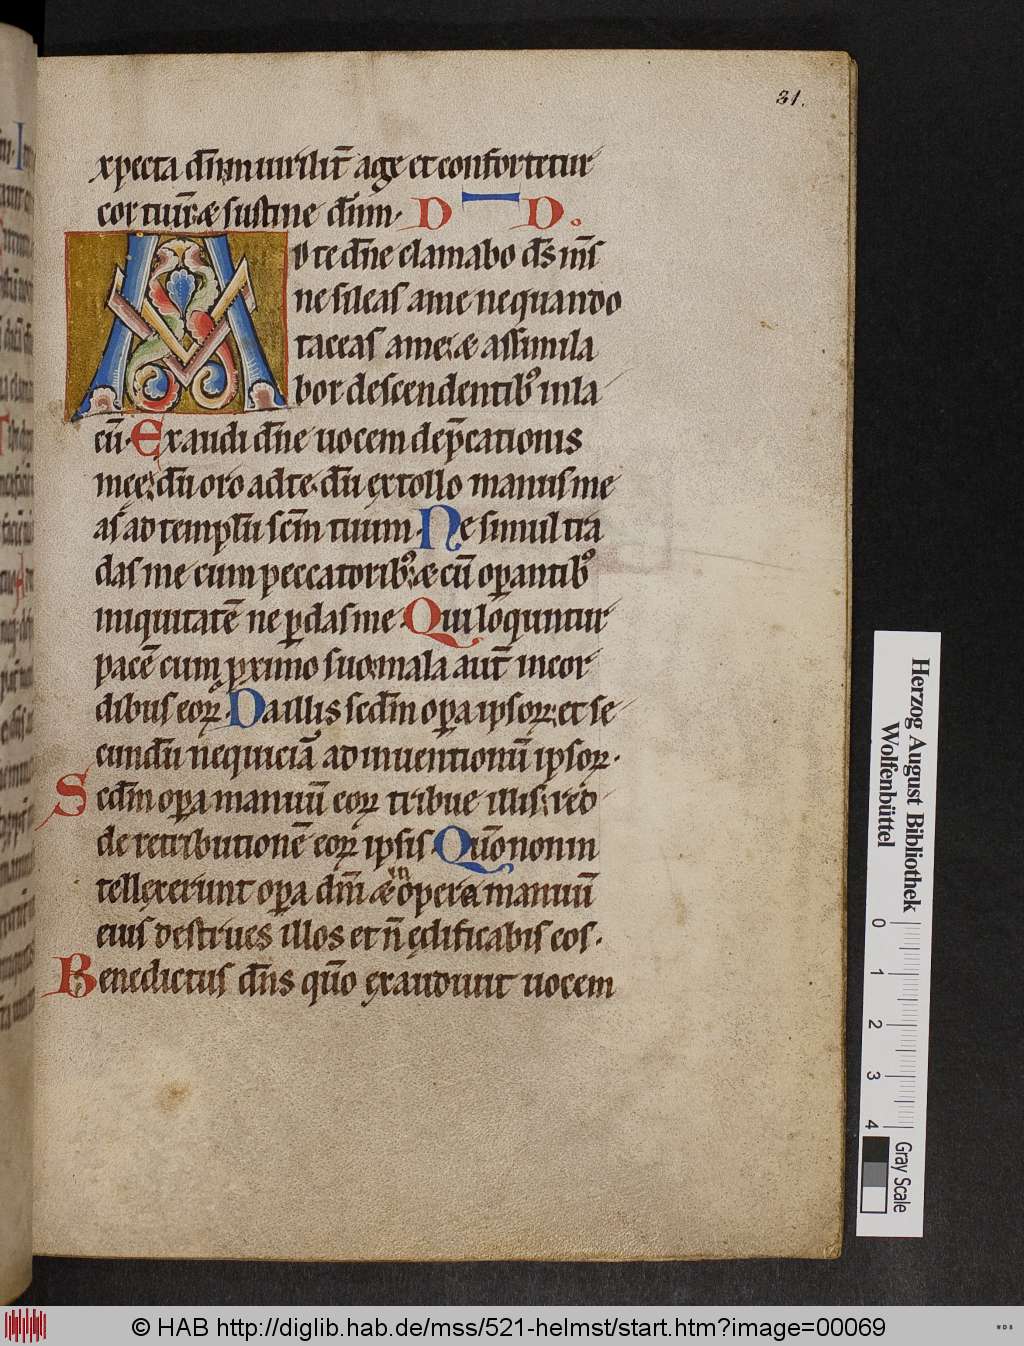 31.
xpecta dn̄m uirilit̄ age et confortetur
cor tuū: & sustine dn̄m. D D.
AD te dn̄e clamabo ds̄ ms̄
ne sileas a me ne quando
taceas a me: & assimila
bor descendentib9 in la
cū. Exaudi dn̄e uocem dep̄cationis
meę: dū oro ad te. dū extollo manus me
as ad templū scm̄ tuum. Ne simul tra
das me cum peccatorib9: & cū oꝑantib9
iniquitatē ne ꝑdas me. Qui loquuntur
pacē cum ꝓximo suo: mala aut̄ in cor
dibus eoꝝ. Da illis scdm̄ oꝑa ipsoꝝ: et se
cundū nequiciā adinuentionū ipsoꝝ.
Scdm̄ oꝑa manuū eoꝝ tribue illis: red
de retributionē eoꝝ ipsis. Qūo non in
tellexerunt oꝑa dn̄i & in opera manuū
eius destrues illos et n̄ ędificabis eos.
Benedictus dn̄s qūo exaudiuit uocem
Herzog August Bibliothek
Wolfenbüttel
0 1 2 3 4
Gray Scale
© HAB http://diglib.hab.de/mss/521-helmst/start.htm?image=00069